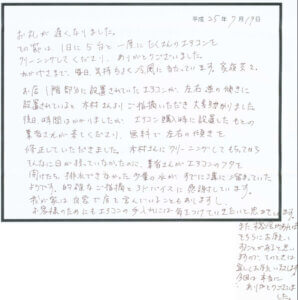 平成25年7月19日
お礼が遅くなりました。
この度は、1日に5台と一度にたくさんのエアコンを
クリーニングしてくださり、ありがとうございました。
おかげさまで、毎日、気持ちよく冷風に当たっています。家族全
お店1階部分に設置されていたエアコンが、左右逆の傾きに
設置されていると 木村さんよりご指摘いただき 大変助かりました
後日、時間はかかりましたが エアコン購入時に設置した もとの
業者さんが来てくださり、無料で 左右の傾きを
修正していただきました。木村さんにクリーニングしてもらってから
そんなに日が経っていなかったのに、業者さんがエアコンのフタを
開けたら、排水できなかった少量の水が すでに溝に溜まっていた
ようです。的確なご指摘とアドバイスに感謝しています。
我が家は自宅で店を営んでいることもありますし、
お客様のためにもエアコンの手入れには 気をつけていきたいと思っています。
また
そちらにお願い
することがあると思い
ますので、そのときは
宜しくお願いいたします
今回は本当に
ありがとうございま
した。